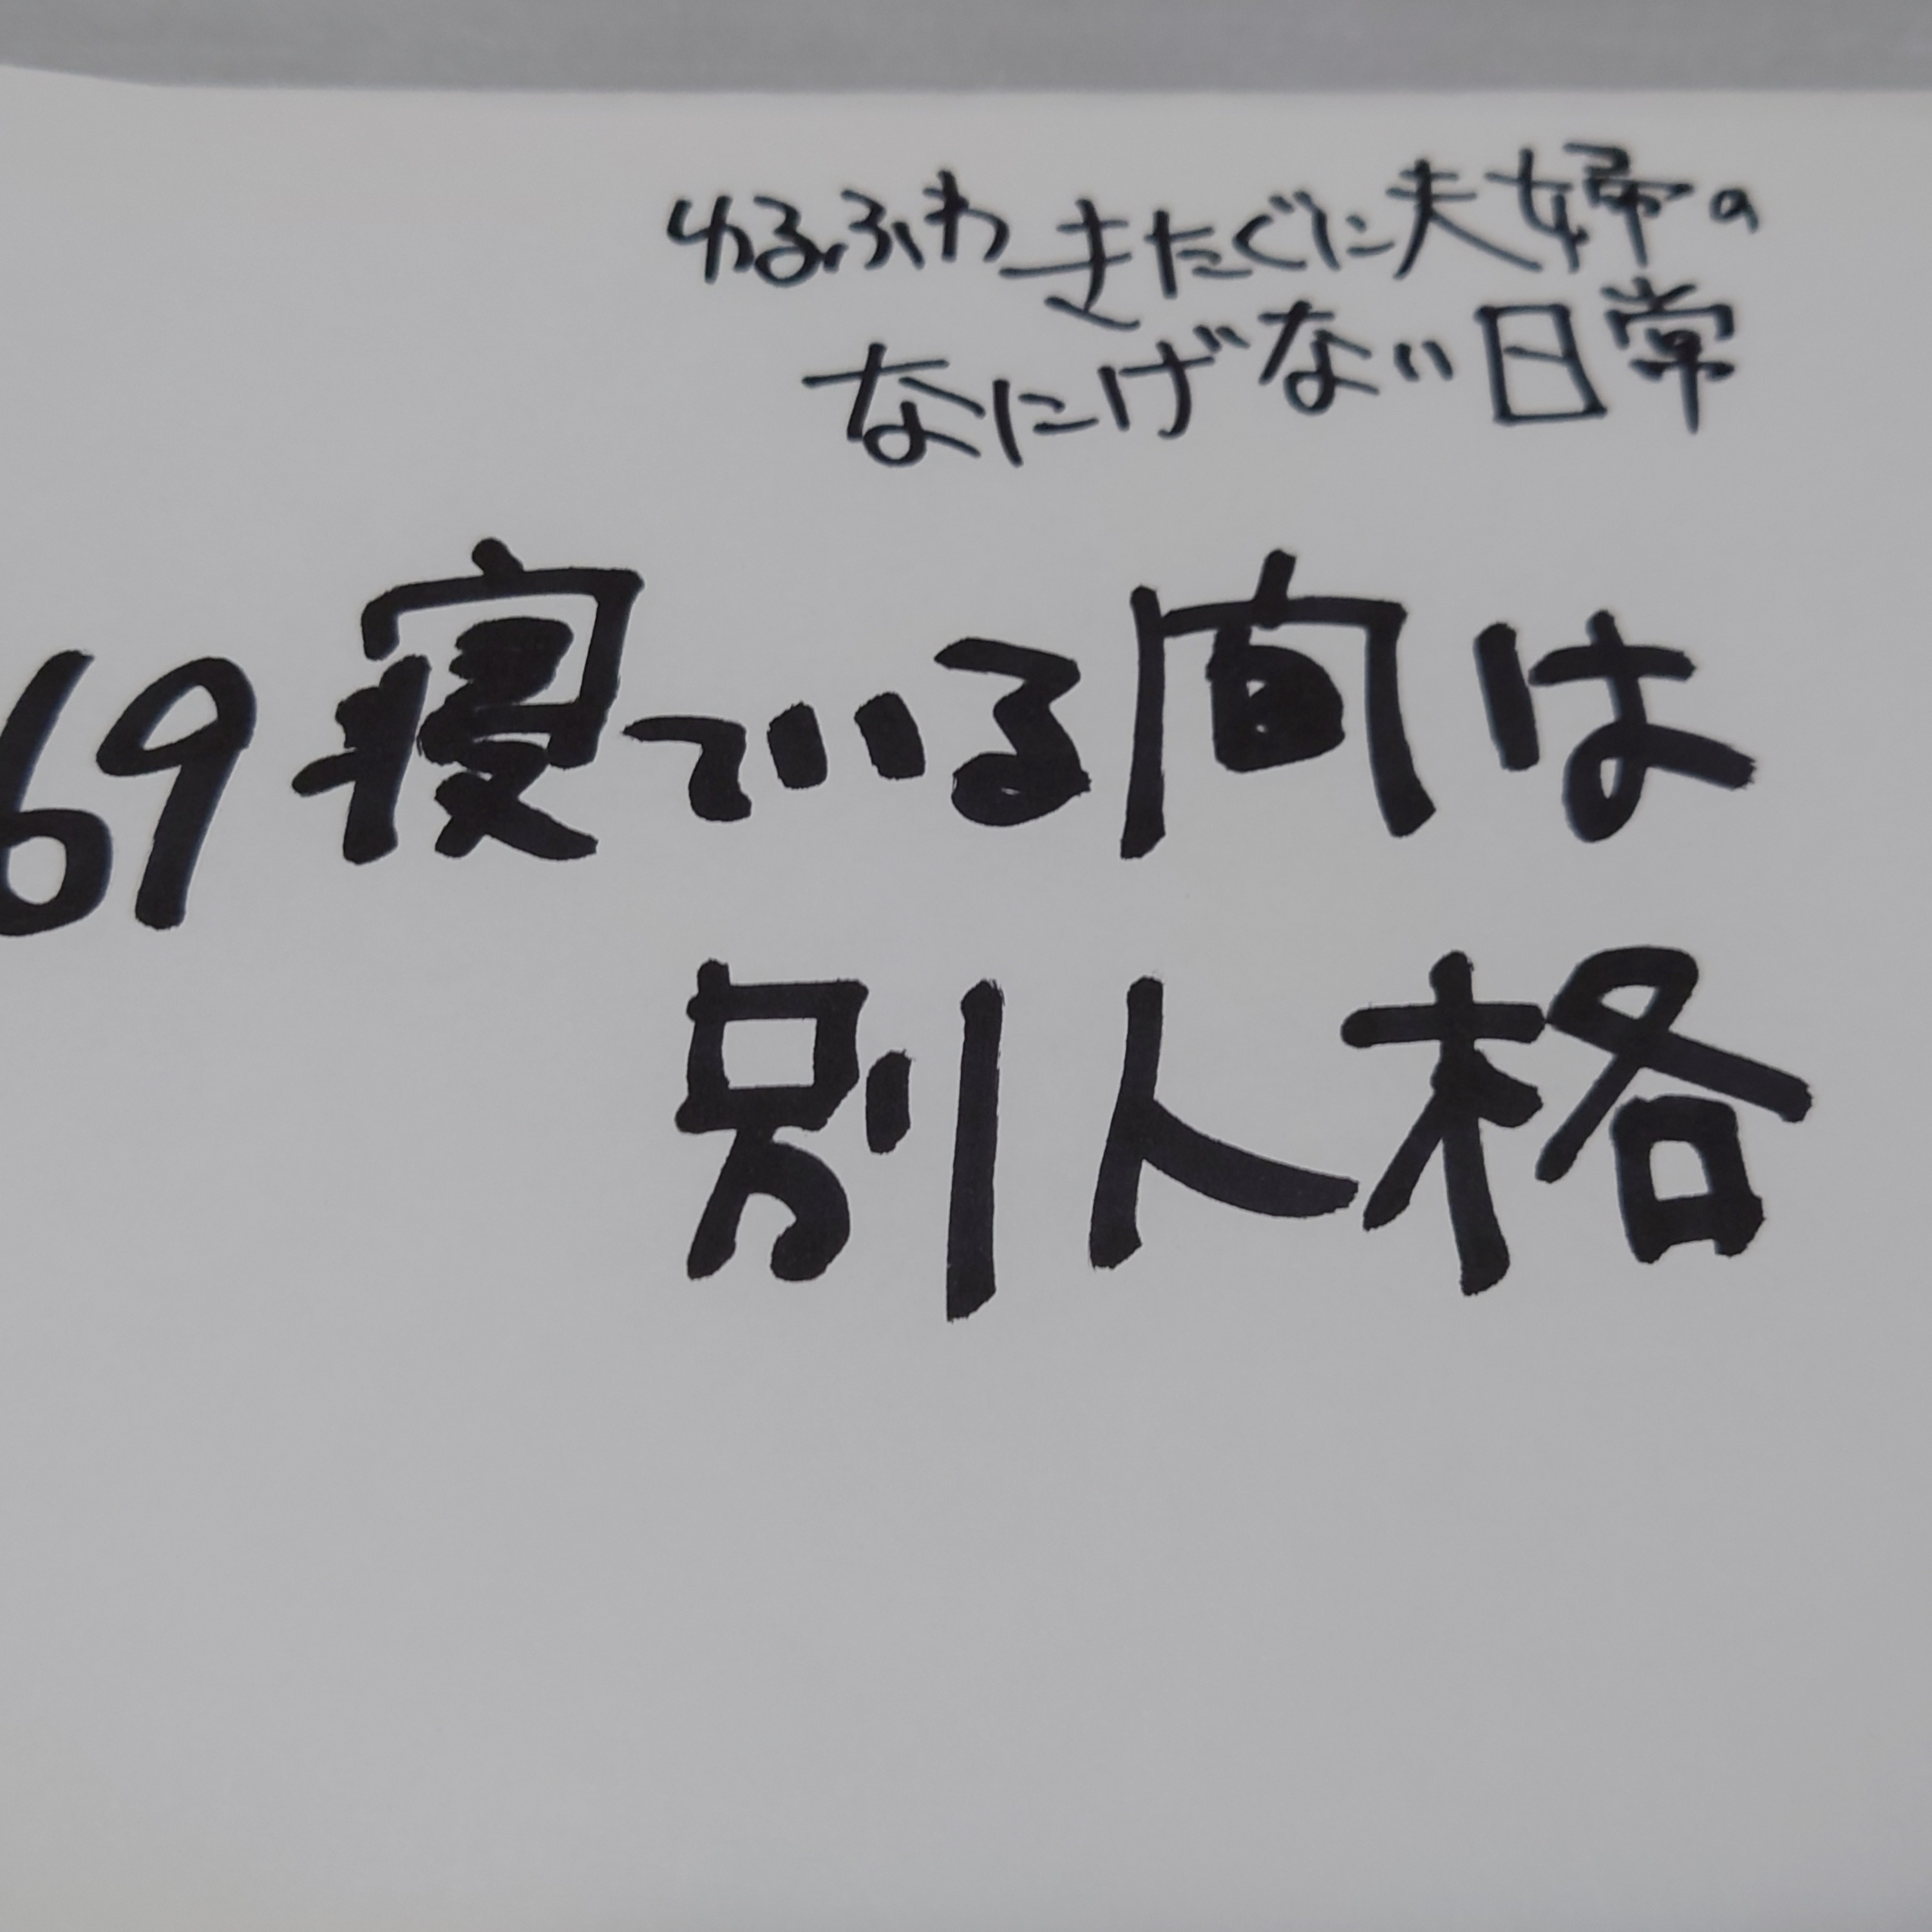 ゆるふわきたぐに夫婦の
なにげない日常
69 寝ている間は
別人格